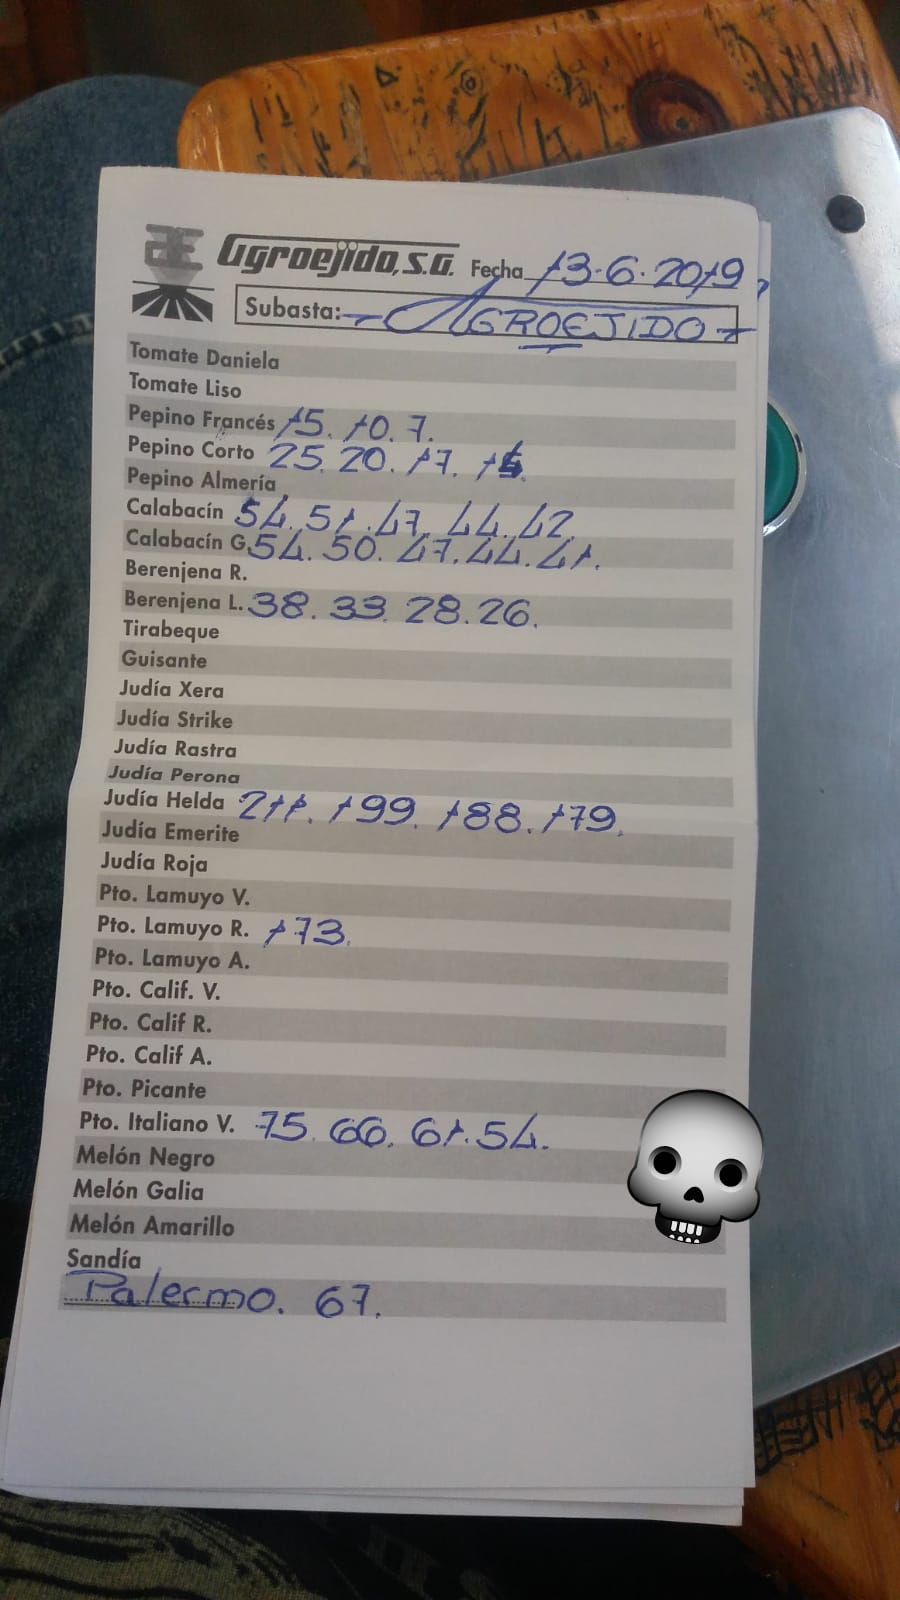 Agroejido, S.A. Fecha 13-6-2019,
Subasta: AGROEJIDO
Tomate Daniela
Tomate Liso
Pepino Francés 15. 10. 7.
Pepino Corto 25. 20. 17.
Pepino Almería
Calabacín 54. 51. 47. 44. 42.
Calabacín G. 54. 50. 47. 44. 41.
Berenjena R.
Berenjena L. 38. 33. 28. 26.
Tirabeque
Guisante
Judía Xera
Judía Strike
Judía Rastra
Judía Perona
Judía Helda 211. 199. 188. 179.
Judía Emerite
Judía Roja
Pto. Lamuyo V.
Pto. Lamuyo R. 173.
Pto. Lamuyo A.
Pto. Calif. V.
Pto. Calif R.
Pto. Calif A.
Pto. Picante
Pto. Italiano V. 75. 66. 61. 54.
Melón Negro
Melón Galia
Melón Amarillo
Sandía
Palermo. 67.